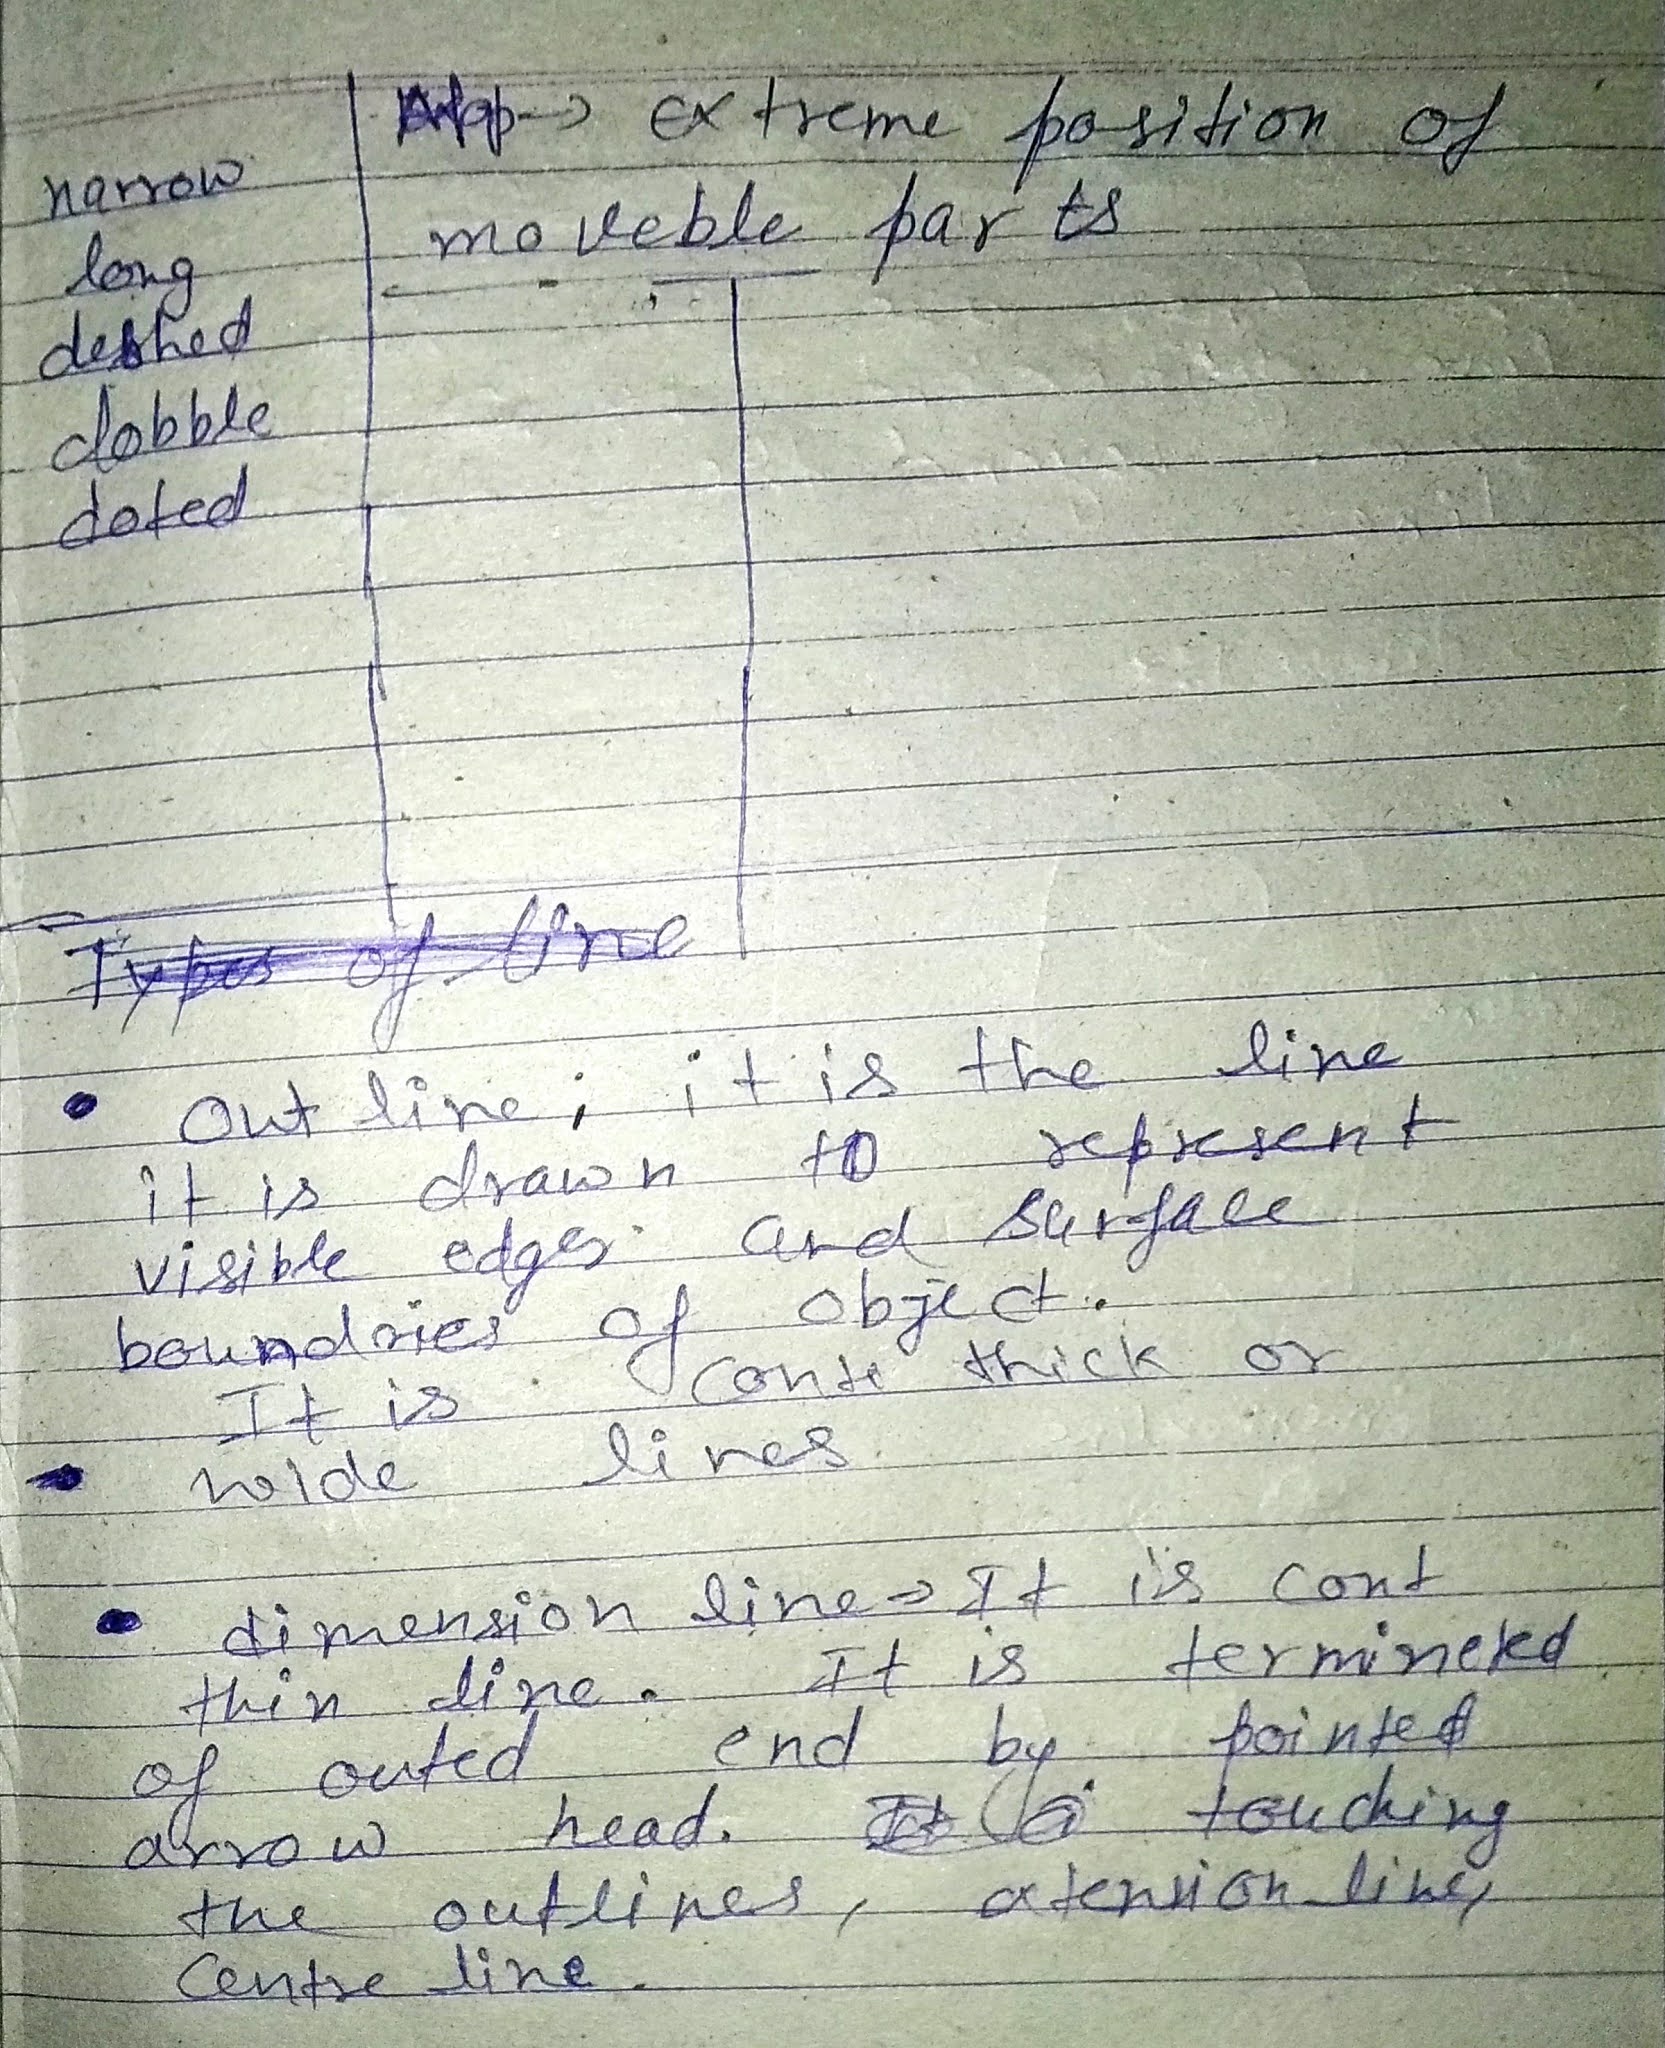 App → extreme position of
moveble parts
narrow
long
deshed
dobble
doted
Types of line
• Out line ; it is the line
it is drawn to represent
visible edges and surface
boundries of object.
It is conti thick or
wide lines
• dimension line → It is cont
thin line. It is termineted
of outed end by pointed
arrow head. touching
the outlines, extension line,
Centre line.